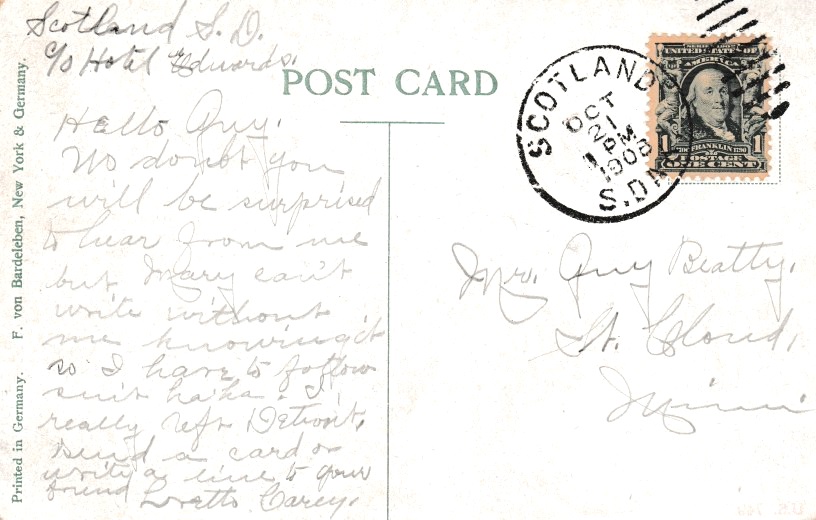 Scotland S. D.
c/o Hotel Edwards.
POST CARD
Hello Guy.
No doubt you
will be surprised
to hear from me
but Mary can't
write without
me knowing it
so I have to follow
suit ha ha. I
really left Detroit,
send a card or
write a line to your
friend Loretto Carey.
SCOTLAND
OCT
21
PM
1908
S.DAK
SERIES 1902
UNITED STATES OF
AMERICA
1 FRANKLIN 1790 1
POSTAGE
ONE CENT
Mr. Guy Beatty.
St. Cloud,
Minn
Printed in Germany. F. von Bardeleben, New York & Germany.